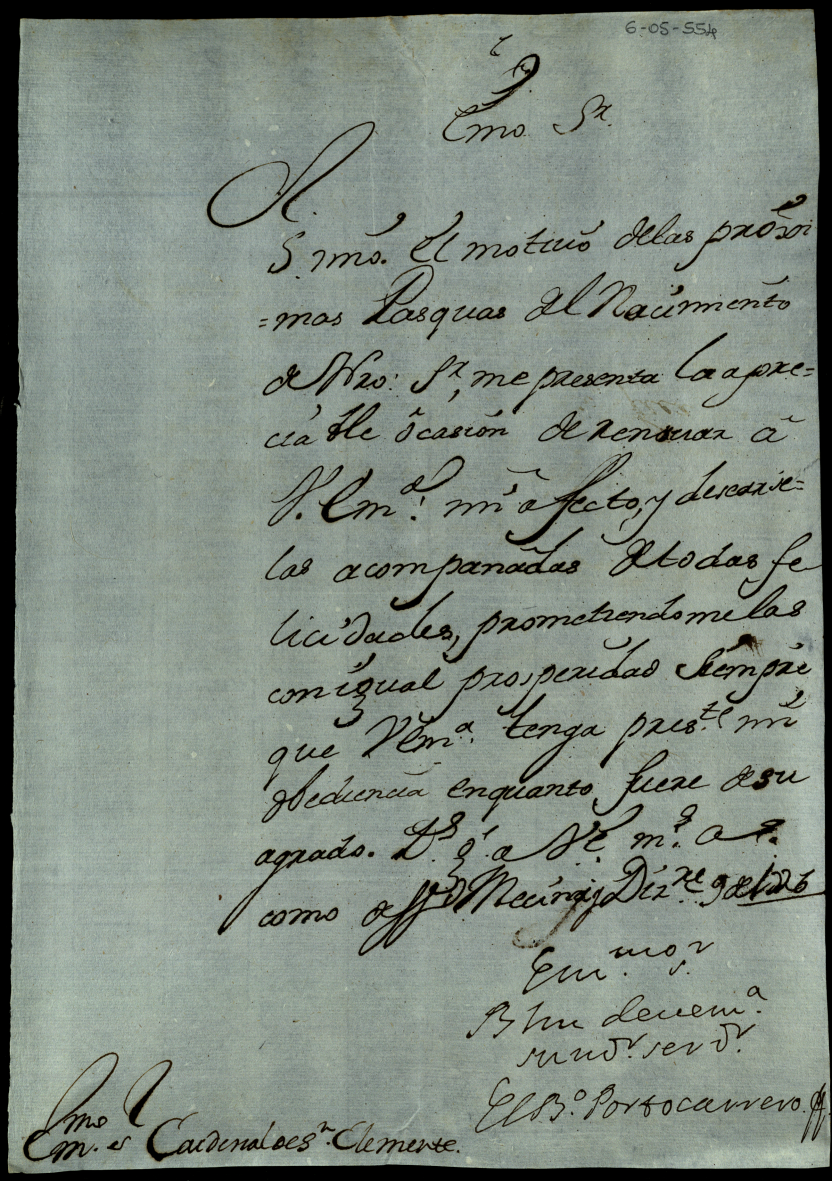 6-05-554
Emo. Sr.
S. mio. El motivo delas proxi
=mas Pasquas del Nacimiento
de Nro. Sr. me presenta la apre=
ciable ocasion de renovar â
V. Emª. mi afecto, y desearse=
las acompañadas de todas fe
licidades, prometiendome las
con igual prosperidad siempre
que VEmª. tenga preste. mi
obediencia enquanto fuere de su
agrado. Ds. g. a VE. ms. as.
como Mecina, y Dizre. 9 de
Emmo. Sr.
B l m de v emª.
su vdr. servdr.
El Bº. Portocarrero.
Emmo. Sr. Cardenal de Sn. Clemente.